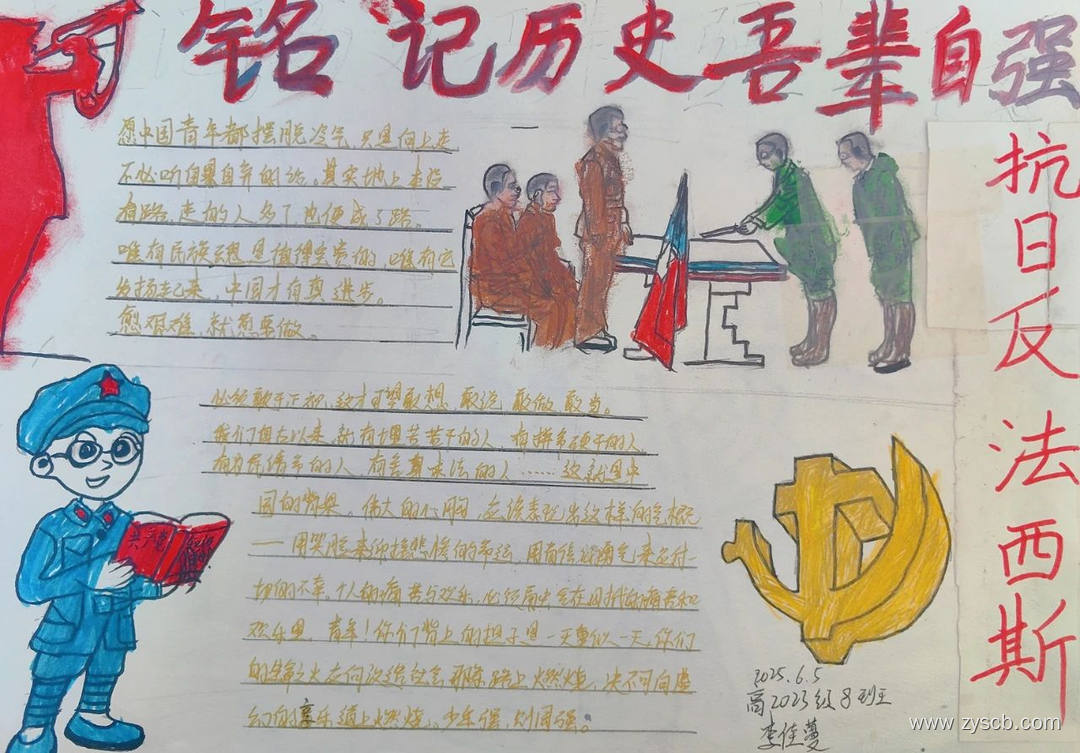 铭记历史吾辈自强
抗日反法西斯
愿中国青年都摆脱冷气,只是向上走
不必听自暴自弃的话。其实地上本没
有路,走的人多了也便成了路。
唯有民族魂是值得宝贵的,唯有它
发扬起来,中国才有真进步。
愈艰难,就愈要做。
必须敢于正视,这才可望敢想,敢说,敢做,敢当。
我们自古以来,就有埋头苦干的人,有拼命硬干的人
有为民请命的人,有舍身求法的人……这就是中
国的脊梁。伟大的心胸,应该表现出这样的气概
——用笑脸来迎接悲惨的命运,用百倍的勇气来应付一
切的不幸。个人的痛苦与欢乐,必须融合在时代的痛苦和
欢乐里。青年!你们背上的担子是一天重似一天,你们
的生命之火应向改造社会那条路上燃烧,决不可向虚
幻的享乐道上燃烧。少年强,则国强。
共产党
2025.6.5
高2023级8班
李佳蔓
www.zyscb.com